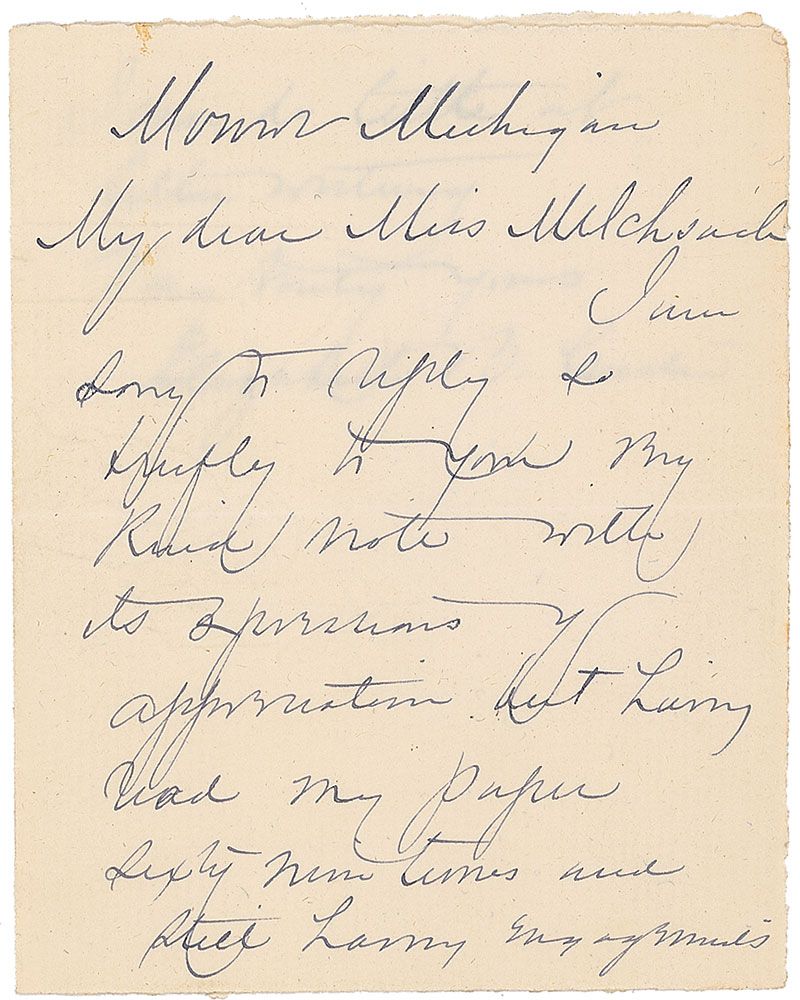 Monroe Michigan
My dear Miss Melchsach
I am
sorry to reply so
briefly to your very
kind note with
its expressions of
appreciation but having
read my paper
sixty nine times and
still having engagements